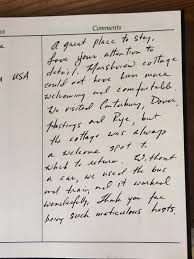 ss
Comments
USA
A great place to stay,
love your attention to
detail. Marshview cottage
could not have been more
welcoming and comfortable.
We visited Canterbury, Dover,
Hastings and Rye, but
the cottage was always
a welcome spot to
which to return. Without
a car, we used the bus
and train, and it worked
wonderfully. Thank you for
being such meticulous hosts.